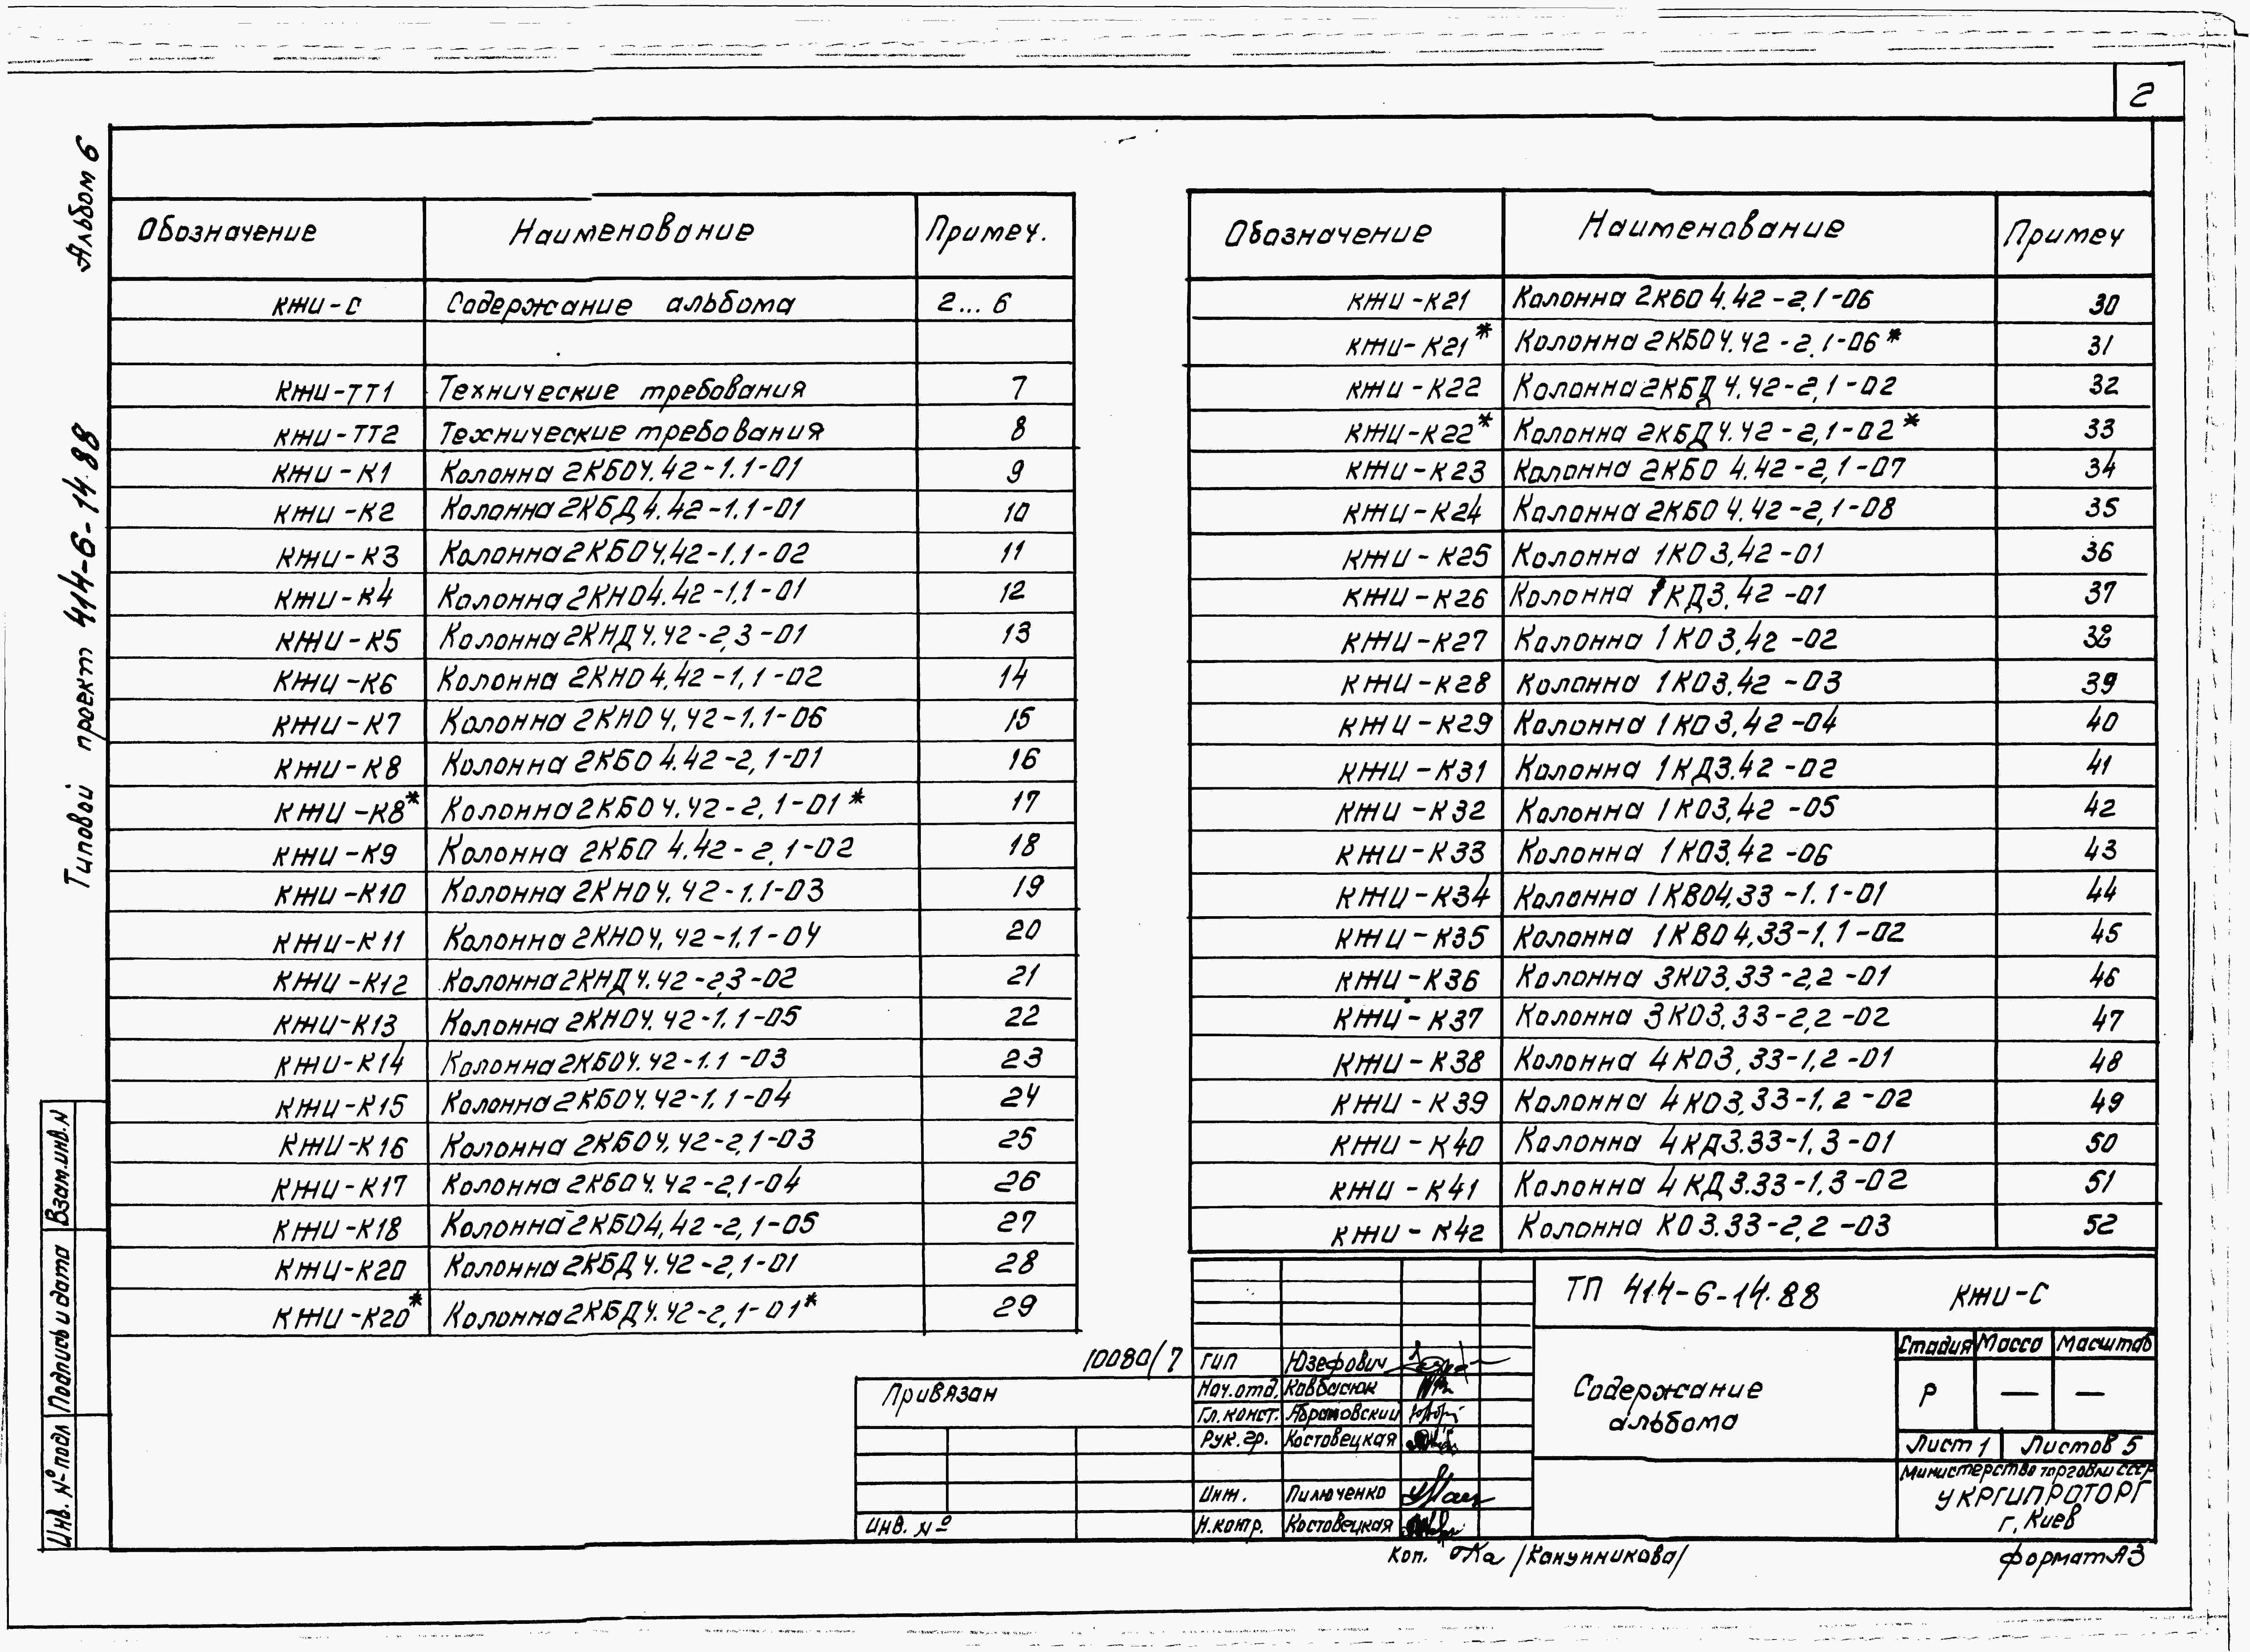 2
Альбом 6
Типовой проект 414-6-14.88
Обозначение Наименование Примеч.
КЖИ-С Содержание альбома 2...6
КЖИ-ТТ1 Технические требования 7
КЖИ-ТТ2 Технические требования 8
КЖИ-К1 Колонна 2КБО4.42-1.1-01 9
КЖИ-К2 Колонна 2КБД4.42-1.1-01 10
КЖИ-К3 Колонна 2КБО4.42-1.1-02 11
КЖИ-К4 Колонна 2КНО4.42-1.1-01 12
КЖИ-К5 Колонна 2КНД4.42-2,3-01 13
КЖИ-К6 Колонна 2КНО4.42-1.1-02 14
КЖИ-К7 Колонна 2КНО4.42-1.1-06 15
КЖИ-К8 Колонна 2КБО4.42-2,1-01 16
КЖИ-К8* Колонна 2КБО4.42-2,1-01* 17
КЖИ-К9 Колонна 2КБО4.42-2,1-02 18
КЖИ-К10 Колонна 2КНО4.42-1.1-03 19
КЖИ-К11 Колонна 2КНО4.42-1.1-04 20
КЖИ-К12 Колонна 2КНД4.42-2,3-02 21
КЖИ-К13 Колонна 2КНО4.42-1.1-05 22
КЖИ-К14 Колонна 2КБО4.42-1.1-03 23
КЖИ-К15 Колонна 2КБО4.42-1.1-04 24
КЖИ-К16 Колонна 2КБО4.42-2,1-03 25
КЖИ-К17 Колонна 2КБО4.42-2,1-04 26
КЖИ-К18 Колонна 2КБО4.42-2,1-05 27
КЖИ-К20 Колонна 2КБД4.42-2,1-01 28
КЖИ-К20* Колонна 2КБД4.42-2,1-01* 29
Обозначение Наименование Примеч
КЖИ-К21 Колонна 2КБО4.42-2,1-06 30
КЖИ-К21* Колонна 2КБО4.42-2,1-06* 31
КЖИ-К22 Колонна 2КБД4.42-2,1-02 32
КЖИ-К22* Колонна 2КБД4.42-2,1-02* 33
КЖИ-К23 Колонна 2КБО4.42-2,1-07 34
КЖИ-К24 Колонна 2КБО4.42-2,1-08 35
КЖИ-К25 Колонна 1КО3.42-01 36
КЖИ-К26 Колонна 1КД3.42-01 37
КЖИ-К27 Колонна 1КО3.42-02 38
КЖИ-К28 Колонна 1КО3.42-03 39
КЖИ-К29 Колонна 1КО3.42-04 40
КЖИ-К31 Колонна 1КД3.42-02 41
КЖИ-К32 Колонна 1КО3.42-05 42
КЖИ-К33 Колонна 1КО3.42-06 43
КЖИ-К34 Колонна 1КВО4.33-1.1-01 44
КЖИ-К35 Колонна 1КВО4.33-1.1-02 45
КЖИ-К36 Колонна 3КО3.33-2,2-01 46
КЖИ-К37 Колонна 3КО3.33-2,2-02 47
КЖИ-К38 Колонна 4КО3.33-1,2-01 48
КЖИ-К39 Колонна 4КО3.33-1.2-02 49
КЖИ-К40 Колонна 4КД3.33-1.3-01 50
КЖИ-К41 Колонна 4КД3.33-1.3-02 51
КЖИ-К42 Колонна КО3.33-2,2-03 52
Взам.инв.N
Подпись и дата
Инв. № подл
10080/7
Привязан
Инв. №
ГИП Юзефович
Нач.отд. Ковбасюк
Гл.конст. Абрамовский
Рук.гр. Костовецкая
Инж. Пилюченко
Н.контр. Костовецкая
ТП 414-6-14.88 КЖИ-С
Содержание
альбома
Стадия Масса Масштаб
Р — —
Лист 1 Листов 5
Министерство торговли СССР
УКРГИПРОТОРГ
г. Киев
Коп. /Канунникова/
Формат А3